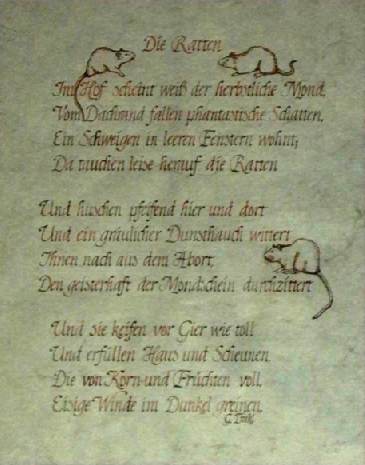 Die Ratten
Im Hof scheint weiß der herbstliche Mond.
Vom Dachrand fallen phantastische Schatten.
Ein Schweigen in leeren Fenstern wohnt;
Da tauchen leise herauf die Ratten
Und huschen pfeifend hier und dort
Und ein gräulicher Dunsthauch wittert
Ihnen nach aus dem Abort,
Den geisterhaft der Mondschein durchzittert
Und sie keifen vor Gier wie toll
Und erfüllen Haus und Scheunen,
Die von Korn und Früchten voll.
Eisige Winde im Dunkel greinen.
G. Trakl